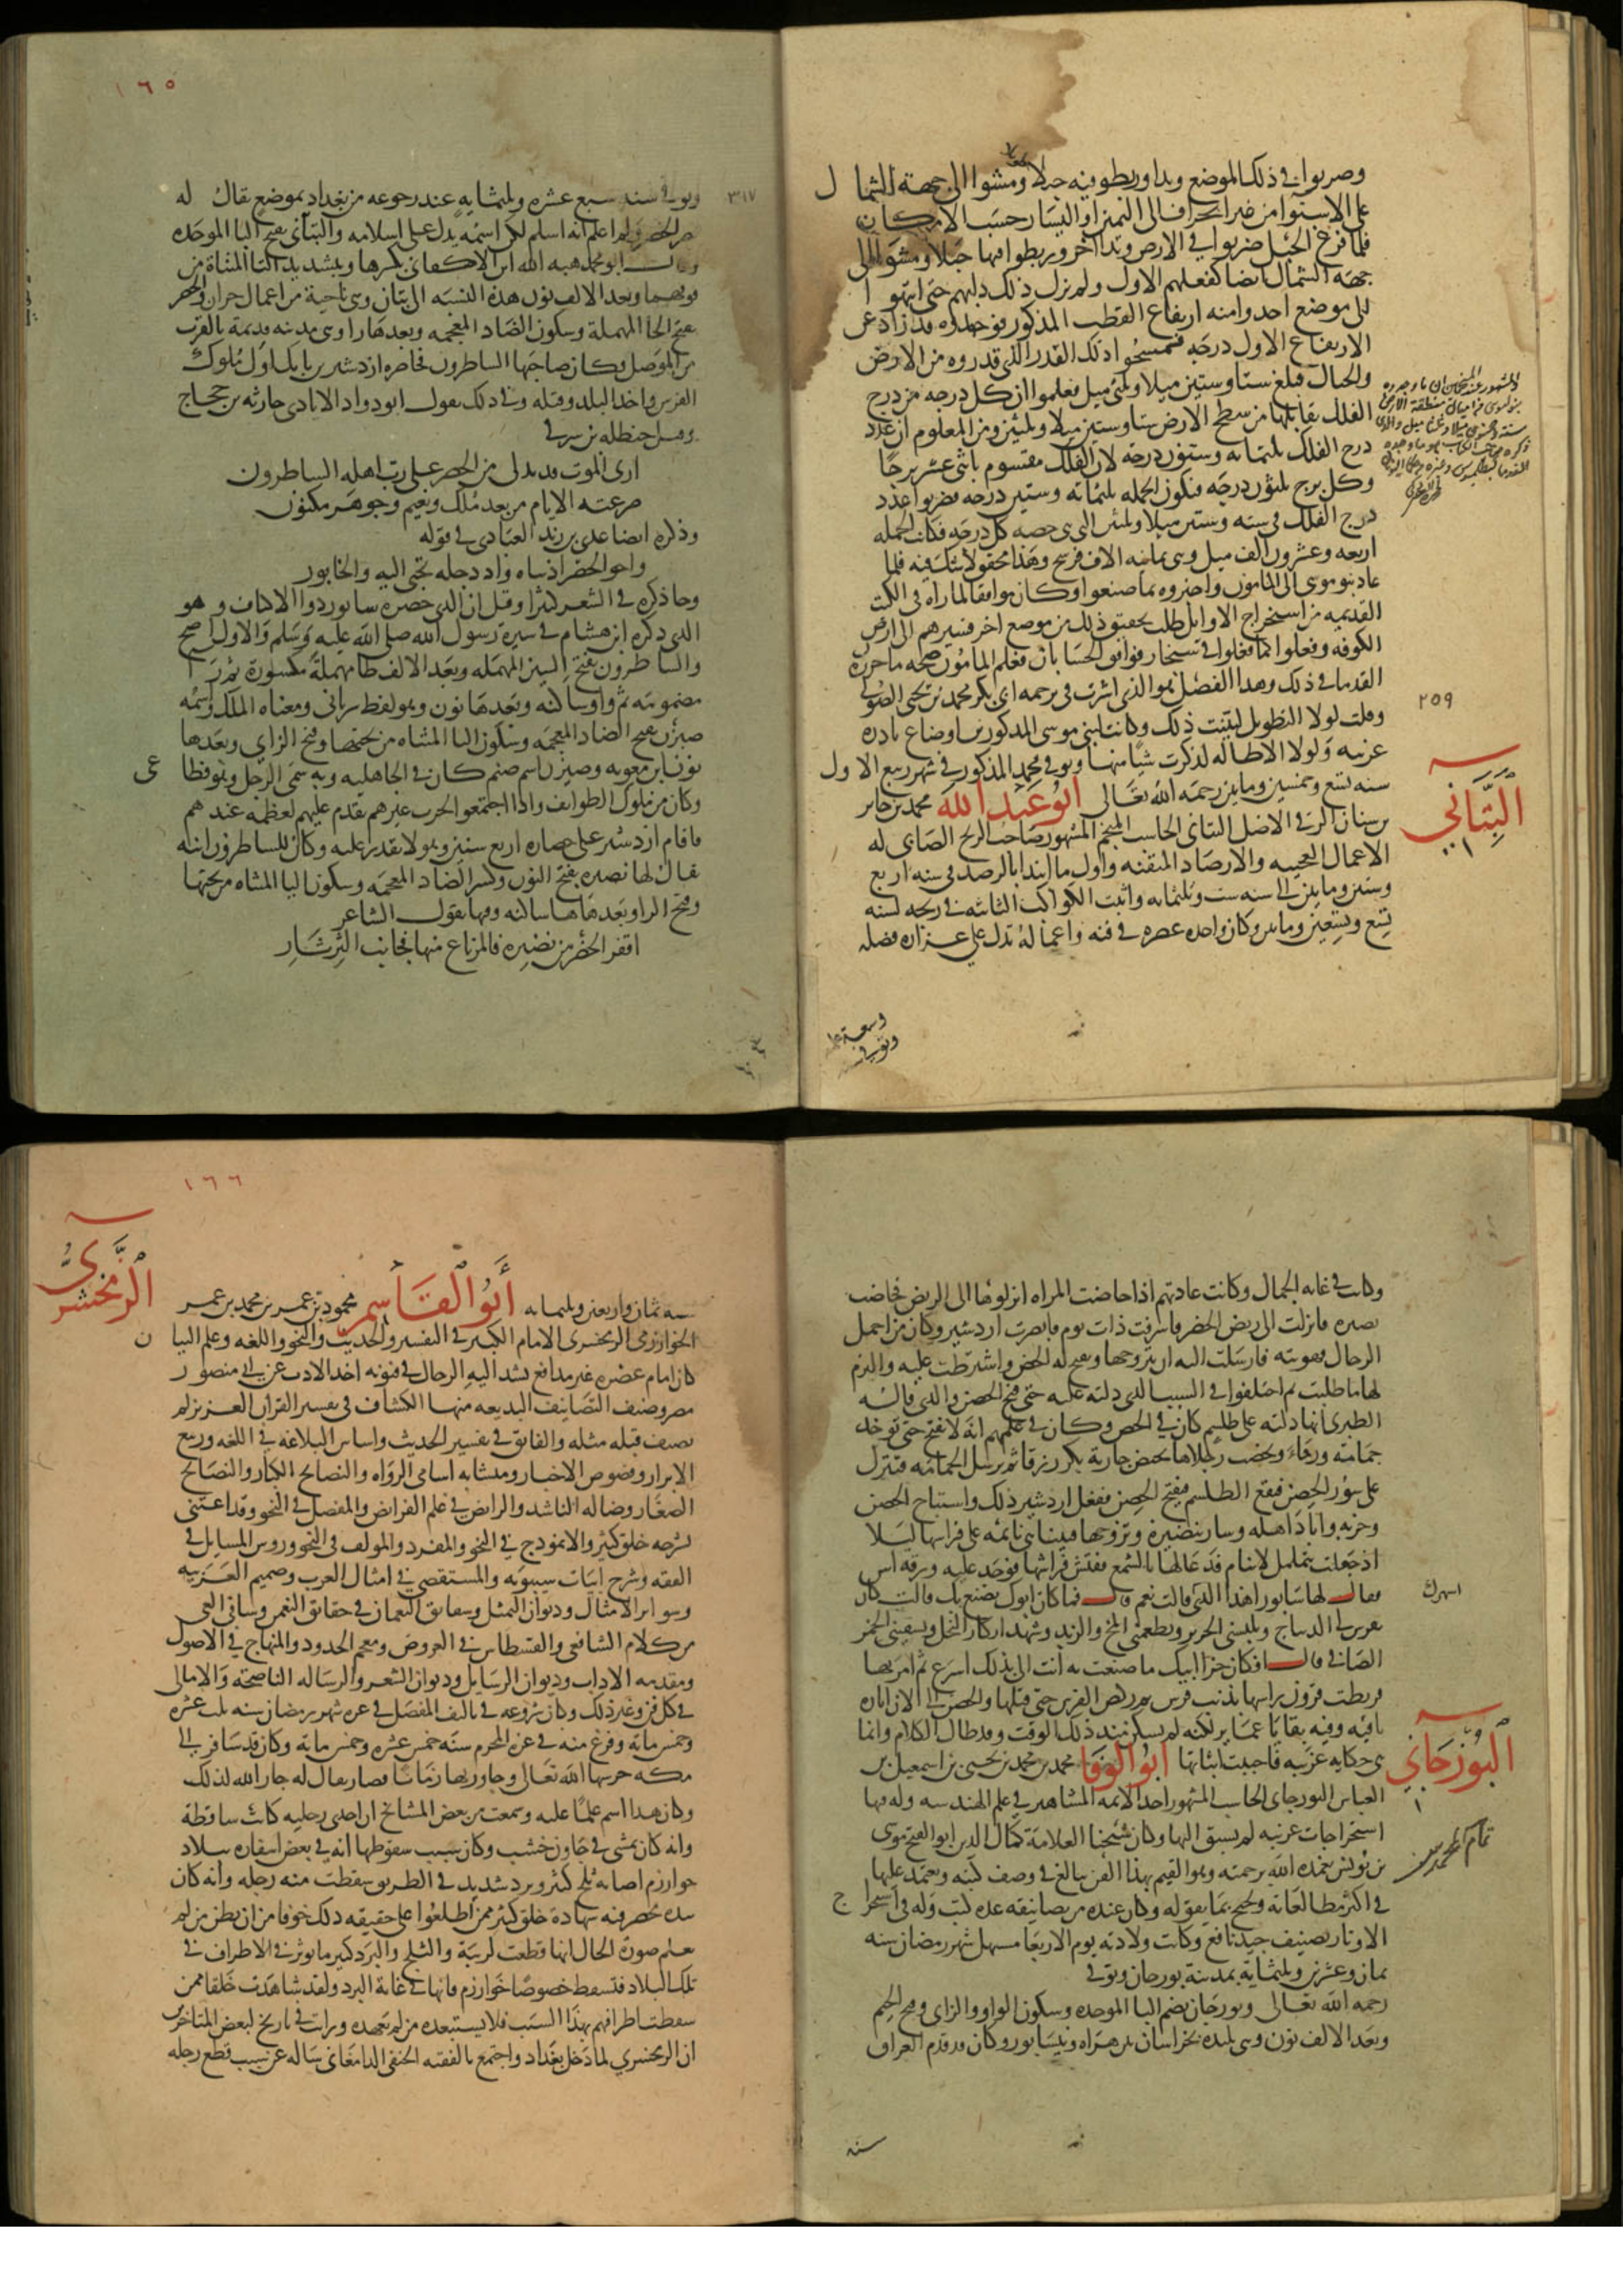 وضربوا في ذلك الموضع وتدا وربطوا فيه حبلا ومشوا الى جهة الشمال
على الاستوا من غير انحراف الى اليمين او اليسار حسب الامكان
فلما فرغ الحبل ضربوا في الارض وتدا اخر وربطوا فيها حبلا ومشوا الى
جهة الشمال ايضا كفعلهم الاول ولم يزل ذلك دابهم حتى انتهوا
الى موضع اخذوا منه ارتفاع القطب المذكور فوجدوه قد زاد عن
الارتفاع الاول درجة فمسحوا ذلك القدر الذى قدروه من الارض
والحبال فبلغ ستا وستين ميلا وثلثى ميل فعلموا ان كل درجه من درج
الفلك يقابلها من سطح الارض ستا وستين ميلا وثلثين ومن المعلوم ان عدد
درج الفلك ثلثمايه وستون درجه لان الفلك مقسوم باثنى عشر برجا
وكل برج ثلثون درجه فتكون الجمله ثلثمائه وستين درجه فضربوا عدد
درج الفلك فى سته وستين ميلا وثلثين التى هى حصه كل درجه فكانت الجمله
اربعه وعشرون الف ميل وهى ثمانيه الاف فرسخ وهذا محقق لا شك فيه فلما
عاد بنو موسى الى المامون واخبروه بما صنعوا وكان موافقا لما راه فى الكتب
القديمه من استخراج الاوايل طلب تحقيق ذلك من موضع اخر فسيرهم الى ارض
الكوفه وفعلوا كما فعلوا فى سنجار فوافق الحسابان فعلم المامون صحه ما حرره
القدما فى ذلك وهذا الفصل هو الذى اشرت فى ترجمه ابى بكر محمد بن يحيى الصولى
٢٥٩
وقلت لولا التطويل لبينت ذلك وكانت لبنى موسى المذكورين اوضاع نادره
غريبه ولولا الاطاله لذكرت شيا منها وتوفى محمد المذكور فى شهر ربيع الاول
سنه تسع وخمسين ومايتين رحمه الله تعالى ابو عبد الله محمد بن جابر
البَتَّاني
بن سنان الرقى الاصل البتانى الحاسب المنجم المشهور صاحب الزيج الصابى له
الاعمال العجيبه والارصاد المتقنه واول ما ابتدا بالرصد فى سنه اربع
وستين ومايتين الى سنه ست وثلثمايه واثبت الكواكب الثابته فى زيجه لسنه
تسع وتسعين ومايتين وكان واحد عصره فى فنه واعماله تدل على غزاره فضله
وسعة علمه
وتوفى
١٦٥
٣١٧
وتوفى سنه سبع عشره وثلثمايه عند رجوعه من بغداد بموضع يقال له
قصر الحضر ولم اعلم انه اسلم لكن اسمه يدل على اسلامه والبتانى بفتح البا الموحده
وقال ابو محمد هبه الله ابن الاكفانى بكسرها وبتشديد التا المثناة من
فوقها وبعد الالف نون هذه النسبه الى بتان وهى ناحية من اعمال حران والحضر
بفتح الحا المهملة وسكون الضاد المعجمه وبعدها را وهى مدينه قديمة بالقرب
من الموصل وكان صاحبها الساطرون فحاصره ازدشير بن بابك اول ملوك
الفرس واخذ البلد وقتله وفى ذلك يقول ابو دواد الايادى حارثه بن حجاج
وقيل حنظله بن شرقى
ارى الموت قد تدلى من الحضر على رب اهله الساطرون
صرعته الايام من بعد ملك ونعيم وجوهر مكنون
وذكره ايضا عدى بن زيد العبادى فى قوله
واخو الحضر اذ بناه واذ دجله تجبى اليه والخابور
وجا ذكره فى الشعر كثيرا وقيل ان الذى حصره سابور ذوا الاكتاف وهو
الذى ذكره ابن هشام فى سيرة رسول الله صلى الله عليه وسلم والاول اصح
والساطرون بفتح السين المهمله وبعد الالف طا مهملة مكسورة ثم را
مضمومه ثم واو ساكنه وبعدها نون وهو لفظ سريانى ومعناه الملك واسمه
ضيزن بفتح الضاد المعجمه وسكون اليا المثناه من تحتها وفتح الزاي وبعدها
نون ابن معويه وضيزن اسم صنم كان فى الجاهليه وبه سمى الرجل وهو قضاعى
وكان من ملوك الطوايف واذا اجتمعوا لحرب غيرهم يقدم عليهم لعظمته عندهم
فاقام ازدشير على حصاره اربع سنين وهو لا يقدر عليه وكان للساطرون ابنه
يقال لها نضيره بفتح النون وكسر الضاد المعجمه وسكون اليا المثناه من تحتها
وفتح الرا وبعدها ها ساكنه وفيها يقول الشاعر
اقفر الحضر من نضيره فالمرباع منها فجانب الثرثار
وكانت فى غايه الجمال وكانت عادتهم اذا حاضت المراه انزلوها الى الربض فحاضت
نضيره فانزلت الى ربض الحضر فاشرفت ذات يوم فابصرت اردشير وكان من اجمل
الرجال فهويته فارسلت اليه ان يتزوجها وتفتح له الحصن واشترطت عليه والتزم
لها ما طلبت ثم اختلفوا فى السبب الذى دلته عليه حتى فتح الحصن والذى قاله
الطبرى انها دلته على طلسم كان فى الحصن وكان فى علمهم انه لا يفتح حتى توخذ
حمامة ورقاء وتخضب رجلاها بحيض جارية بكر زرقا ثم يرسل الحمامه فتنزل
على سور الحصن فيقع الطلسم فيفتح الحصن ففعل اردشير ذلك واستباح الحصن
وخربه واباد اهله وسار بنضيرة وتزوجها فبينا هى نايمه على فراشها ليلا
اذ جعلت تتململ لا تنام فدعا لها بالشمع ففتش فراشها فوجد عليه ورقه اس
فقال لها سابور اهذا الذى قالت نعم قال فما كان ابوك يصنع بك قالت كان
اسهرك
يفرش لى الديباج ويلبسنى الحرير ويطعمنى المخ والزبد وشهد ابكار النحل ويسقينى الخمر
الصافى قال افكان جزا ابيك ما صنعت به انت الى بذلك اسرع ثم امر بها
فربطت قرون راسها بذنب فرس ثم ركض الفرس حتى قتلها والحصن الى الان اثاره
باقيه وفيه بقايا عماير لكنه لم يسكن منذ ذلك الوقت وقد طال الكلام وانما
هى حكايه غريبه فاحببت اثباتها ابو الوفا محمد بن محمد بن يحيى بن اسمعيل بن
البُوزجَاني
العباس البوزجانى الحاسب المشهور احد الايمه المشاهير فى علم الهندسه وله فيها
استخراجات غريبه لم يسبق اليها وكان شيخنا العلامة كمال الدين ابو الفتح موسى
بن يونس تغمده الله برحمته وهو القيم بهذا الفن يبالغ فى وصف كتبه ويعتمد عليها
فى اكثر مطالعاته ويحتج بما يقوله وكان عنده من تصانيفه عده كتب وله فى استخراج
الاوتار تصنيف جيد نافع وكانت ولادته يوم الاربعا مستهل شهر رمضان سنه
ثمان وعشرين وثلثماية بمدينة بوزجان وتوفى
رحمه الله تعالى وبوزجان بضم البا الموحده وسكون الواو والزاى وفتح الجيم
وبعد الالف نون وهى بليده بخراسان بين هراه ونيسابور وكان قد قدم العراق
سنه
١٦٦
سنه ثمان واربعين وثلثمايه أبو القاسم محمود بن عمر بن محمد بن عمر
الزمخشري
الخوارزمى الزمخشرى الامام الكبير فى التفسير والحديث والنحو واللغه وعلم البيان
كان امام عصره غير مدافع تشد اليه الرحال فى فنونه اخذ الادب عن ابى منصور
نصر وصنف التصانيف البديعه منها الكشاف فى تفسير القران العزيز لم
يصنف قبله مثله والفايق فى تفسير الحديث واساس البلاغه فى اللغه وربيع
الابرار وفصوص الاخبار ومتشابه اسامى الرواه والنصايح الكبار والنصايح
الصغار وضاله الناشد والرايض فى علم الفرايض والمفصل فى النحو وقد اعتنى
بشرحه خلق كثير والانموذج فى النحو والمفرد والمولف فى النحو وروس المسايل فى
الفقه وشرح ابيات سيبويه والمستقصى فى امثال العرب وصميم العربيه
وسواير الامثال وديوان التمثل وشقايق النعمان فى حقايق النعمن وشافى العى
من كلام الشافعى والقسطاس فى العروض ومعجم الحدود والمنهاج فى الاصول
ومقدمه الاداب وديوان الرسايل وديوان الشعر والرساله الناصحة والامالى
فى كل فن وغير ذلك وكان شروعه فى تاليف المفصل فى غره شهر رمضان سنه ثلث عشره
وخمس مائه وفرغ منه فى غرة المحرم سنه خمس عشره وخمس مائه وكان قد سافر الى
مكه حرسها الله تعالى وجاور بها زمانا فصار يقال له جار الله لذلك
وكان هذا اسم علما عليه وسمعت من بعض المشايخ ان احدى رجليه كانت ساقطة
وانه كان يمشى فى جاون خشب وكان سبب سقوطها انه فى بعض اسفاره ببلاد
خوارزم اصابه ثلج كثير وبرد شديد فى الطريق سقطت منه رجله وانه كان
بيده محضر فيه شهادة خلق كثير ممن اطلعوا على حقيقه ذلك خوفا من ان يظن من لم
يعلم صورة الحال انها قطعت لريبة والثلج والبرد كثيرما يوثر فى الاطراف فى
تلك البلاد فتسقط خصوصا خوارزم فانها فى غاية البرد ولقد شاهدت خلقا ممن
سقطت اطرافهم بهذا السبب فلا يستبعده من لم يعهده ورايت فى تاريخ لبعض المتاخرين
ان الزمخشري لما دخل بغداد واجتمع بالفقيه الحنفى الدامغانى ساله عن سبب قطع رجله